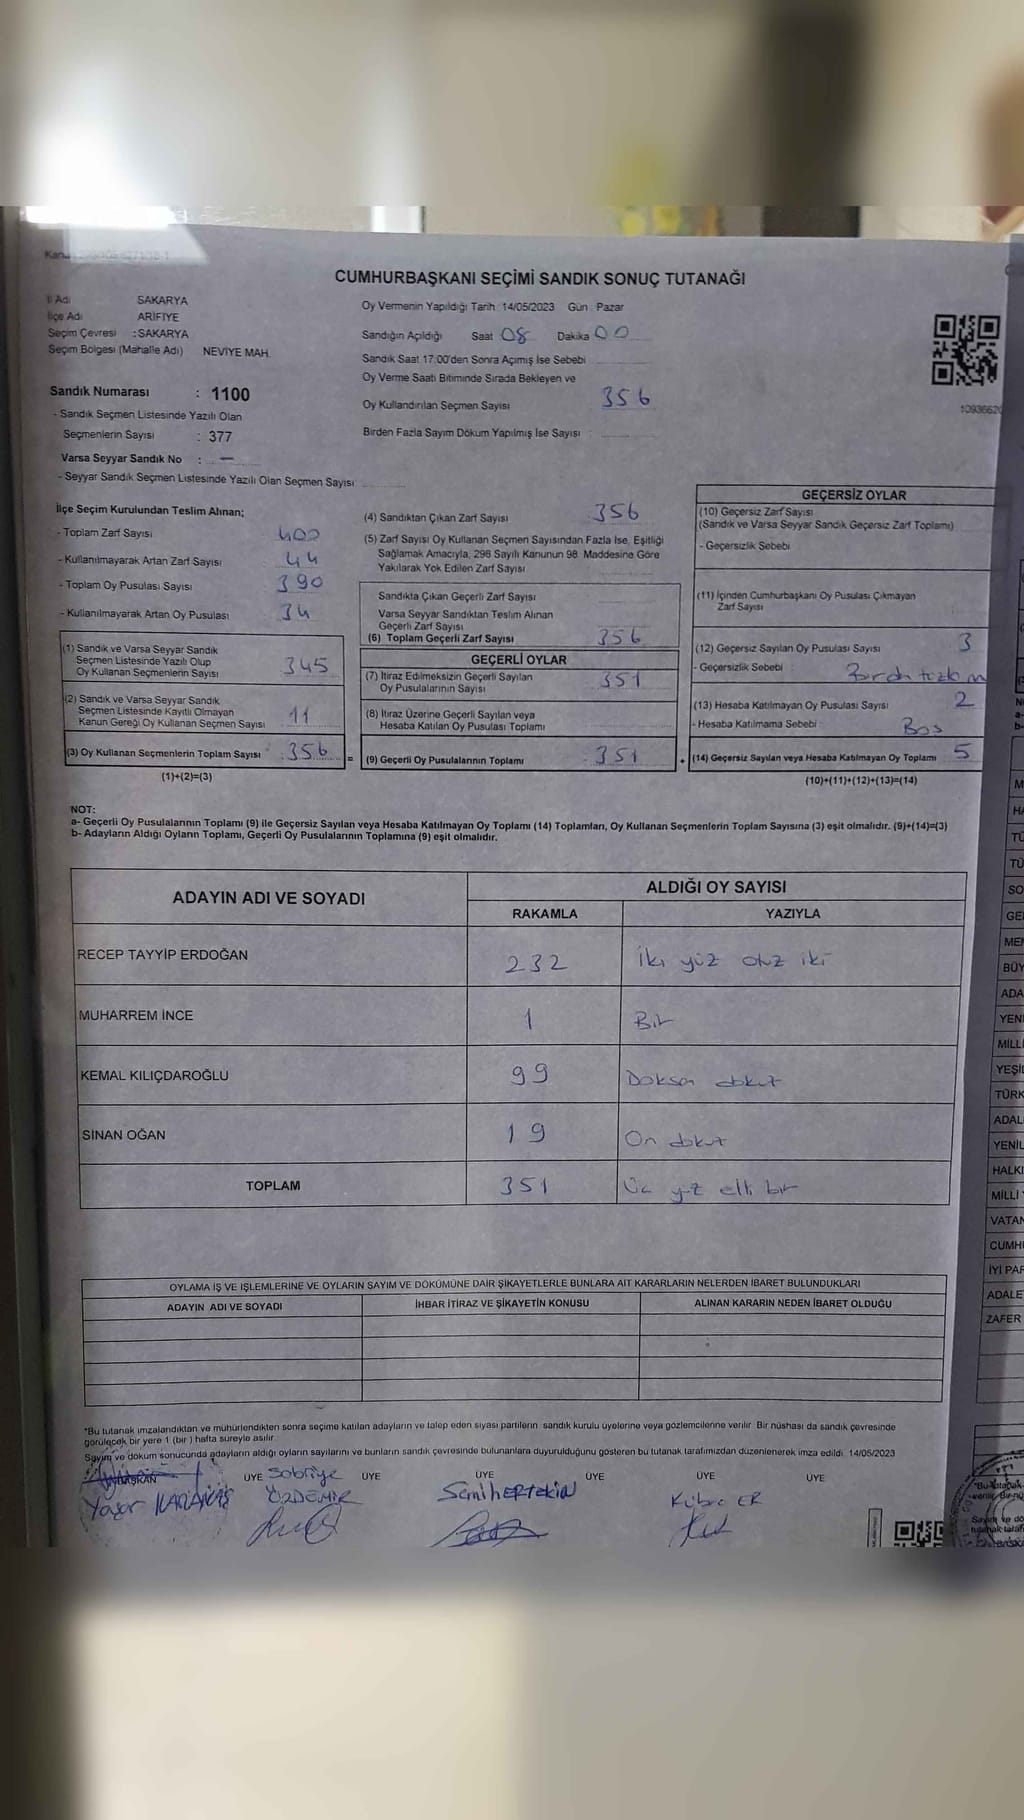 CUMHURBAŞKANI SEÇİMİ SANDIK SONUÇ TUTANAĞI
İl Adı SAKARYA
İlçe Adı ARİFİYE
Seçim Çevresi : SAKARYA
Seçim Bölgesi (Mahalle Adı) NEVİYE MAH.
Oy Vermenin Yapıldığı Tarih 14/05/2023 Gün Pazar
Sandığın Açıldığı Saat 08 Dakika 00
Sandık Saat 17:00'den Sonra Açımış İse Sebebi
Oy Verme Saati Bitiminde Sırada Bekleyen ve
Oy Kullandırılan Seçmen Sayısı 356
Birden Fazla Sayım Döküm Yapılmış İse Sayısı
Sandık Numarası : 1100
- Sandık Seçmen Listesinde Yazılı Olan
Seçmenlerin Sayısı : 377
Varsa Seyyar Sandık No : —
- Seyyar Sandık Seçmen Listesinde Yazılı Olan Seçmen Sayısı
İlçe Seçim Kurulundan Teslim Alınan;
- Toplam Zarf Sayısı 400
- Kullanılmayarak Artan Zarf Sayısı 44
- Toplam Oy Pusulası Sayısı 390
- Kullanılmayarak Artan Oy Pusulası 34
(1) Sandık ve Varsa Seyyar Sandık
Seçmen Listesinde Yazılı Olup
Oy Kullanan Seçmenlerin Sayısı 345
(2) Sandık ve Varsa Seyyar Sandık
Seçmen Listesinde Kayıtlı Olmayan
Kanun Gereği Oy Kullanan Seçmen Sayısı 11
(3) Oy Kullanan Seçmenlerin Toplam Sayısı 356
(1)+(2)=(3)
(4) Sandıktan Çıkan Zarf Sayısı 356
(5) Zarf Sayısı Oy Kullanan Seçmen Sayısından Fazla İse, Eşitliği
Sağlamak Amacıyla, 298 Sayılı Kanunun 98. Maddesine Göre
Yakılarak Yok Edilen Zarf Sayısı
Sandıkta Çıkan Geçerli Zarf Sayısı
Varsa Seyyar Sandıktan Teslim Alınan
Geçerli Zarf Sayısı
(6) Toplam Geçerli Zarf Sayısı 356
GEÇERLİ OYLAR
(7) İtiraz Edilmeksizin Geçerli Sayılan
Oy Pusulalarının Sayısı 351
(8) İtiraz Üzerine Geçerli Sayılan veya
Hesaba Katılan Oy Pusulası Toplamı
= (9) Geçerli Oy Pusulalarının Toplamı 351
GEÇERSİZ OYLAR
(10) Geçersiz Zarf Sayısı
(Sandık ve Varsa Seyyar Sandık Geçersiz Zarf Toplamı)
- Geçersizlik Sebebi
(11) İçinden Cumhurbaşkanı Oy Pusulası Çıkmayan
Zarf Sayısı
(12) Geçersiz Sayılan Oy Pusulası Sayısı 3
- Geçersizlik Sebebi :
(13) Hesaba Katılmayan Oy Pusulası Sayısı 2
- Hesaba Katılmama Sebebi : Boş
+ (14) Geçersiz Sayılan veya Hesaba Katılmayan Oy Toplamı 5
(10)+(11)+(12)+(13)=(14)
NOT:
a- Geçerli Oy Pusulalarının Toplamı (9) ile Geçersiz Sayılan veya Hesaba Katılmayan Oy Toplamı (14) Toplamları, Oy Kullanan Seçmenlerin Toplam Sayısına (3) eşit olmalıdır. (9)+(14)=(3)
b- Adayların Aldığı Oyların Toplamı, Geçerli Oy Pusulalarının Toplamına (9) eşit olmalıdır.
ADAYIN ADI VE SOYADI ALDIĞI OY SAYISI
RAKAMLA YAZIYLA
RECEP TAYYİP ERDOĞAN 232 İki yüz otuz iki
MUHARREM İNCE 1 Bir
KEMAL KILIÇDAROĞLU 99 Doksan dokuz
SİNAN OĞAN 19 On dokuz
TOPLAM 351 Üç yüz elli bir
OYLAMA İŞ VE İŞLEMLERİNE VE OYLARIN SAYIM VE DÖKÜMÜNE DAİR ŞİKAYETLERLE BUNLARA AİT KARARLARIN NELERDEN İBARET BULUNDUKLARI
ADAYIN ADI VE SOYADI İHBAR İTİRAZ VE ŞİKAYETİN KONUSU ALINAN KARARIN NEDEN İBARET OLDUĞU
*Bu tutanak imzalandıktan ve mühürlendikten sonra seçime katılan adayların ve talep eden siyasi partilerin sandık kurulu üyelerine veya gözlemcilerine verilir. Bir nüshası da sandık çevresinde
görülecek bir yere 1 (bir) hafta süreyle asılır.
Sayım ve döküm sonucunda adayların aldığı oyların sayılarını ve bunların sandık çevresinde bulunanlara duyurulduğunu gösteren bu tutanak tarafımızdan düzenlenerek imza edildi. 14/05/2023
BAŞKAN ÜYE ÜYE ÜYE ÜYE ÜYE ÜYE
Yaşar KARAKAŞ Sabriye ÖZDEMİR Semih ERTEKİN Kübra ER
TÜ
TÜ
SO
ADA
YENİ
MİLLİ
YEŞİL
TÜRK
ADAL
YENİL
HALKI
MİLLİ
VATAN
CUMHU
İYİ PAR
ADALE
ZAFER